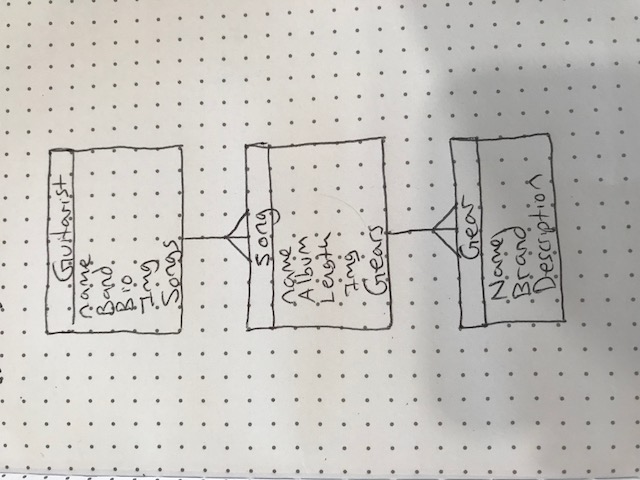 Guitarist
name
Band
Bio
Img
Songs
Song
name
Album
Length
Img
Gears
Gear
Name
Brand
Description